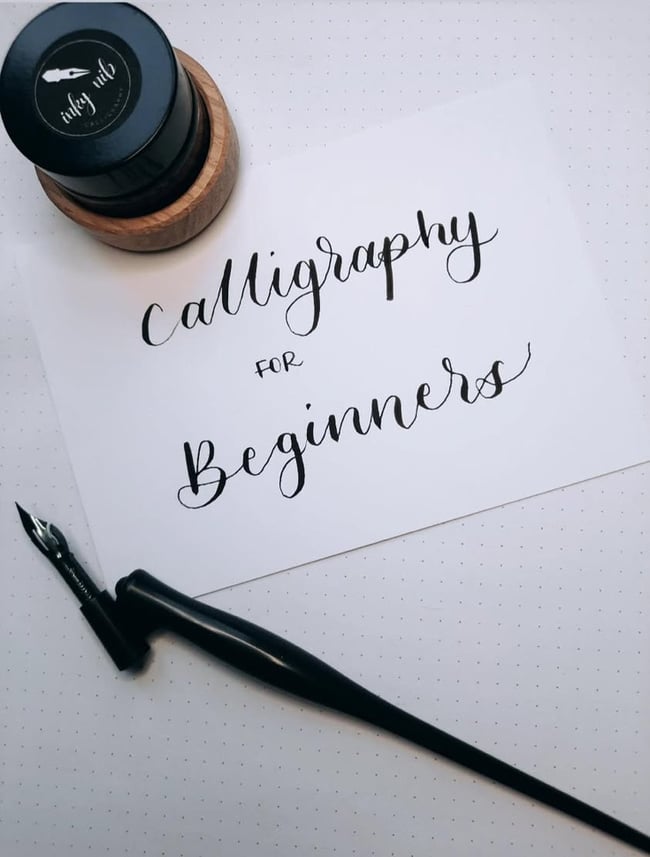 inky nib
CALLIGRAPHY
Calligraphy
FOR
Beginners